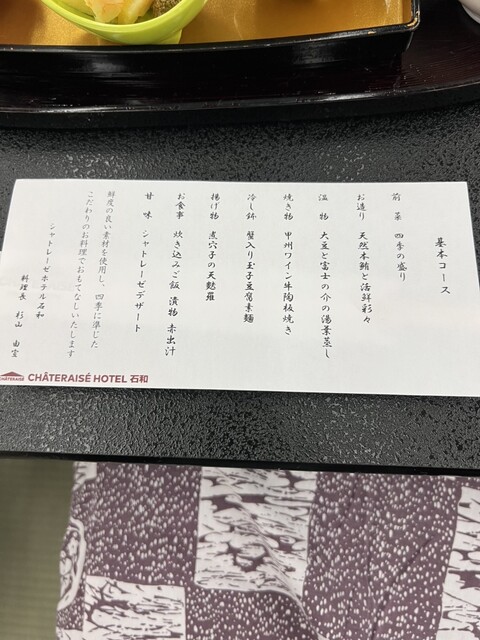 基本コース
前菜 四季の盛り
お造り 天然本鮪と活鮮彩々
温物 大豆と富士の介の湯葉蒸し
焼き物 甲州ワイン牛陶板焼き
冷し鉢 蟹入り玉子豆腐素麺
揚げ物 煮穴子の天麩羅
お食事 炊き込みご飯 漬物 赤出汁
甘味 シャトレーゼデザート
鮮度の良い素材を使用し、四季に準じた
こだわりのお料理でおもてなしいたします
シャトレーゼホテル石和
料理長 杉山 由宣
CHÂTERAISÉ
CHÂTERAISÉ HOTEL 石和